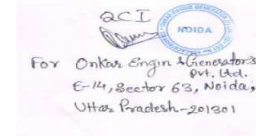 QCI
NOIDA
For Onkar Engin & Generators
Pvt. Ltd.
E-14, Sector 63, Noida,
Uttar Pradesh-201301